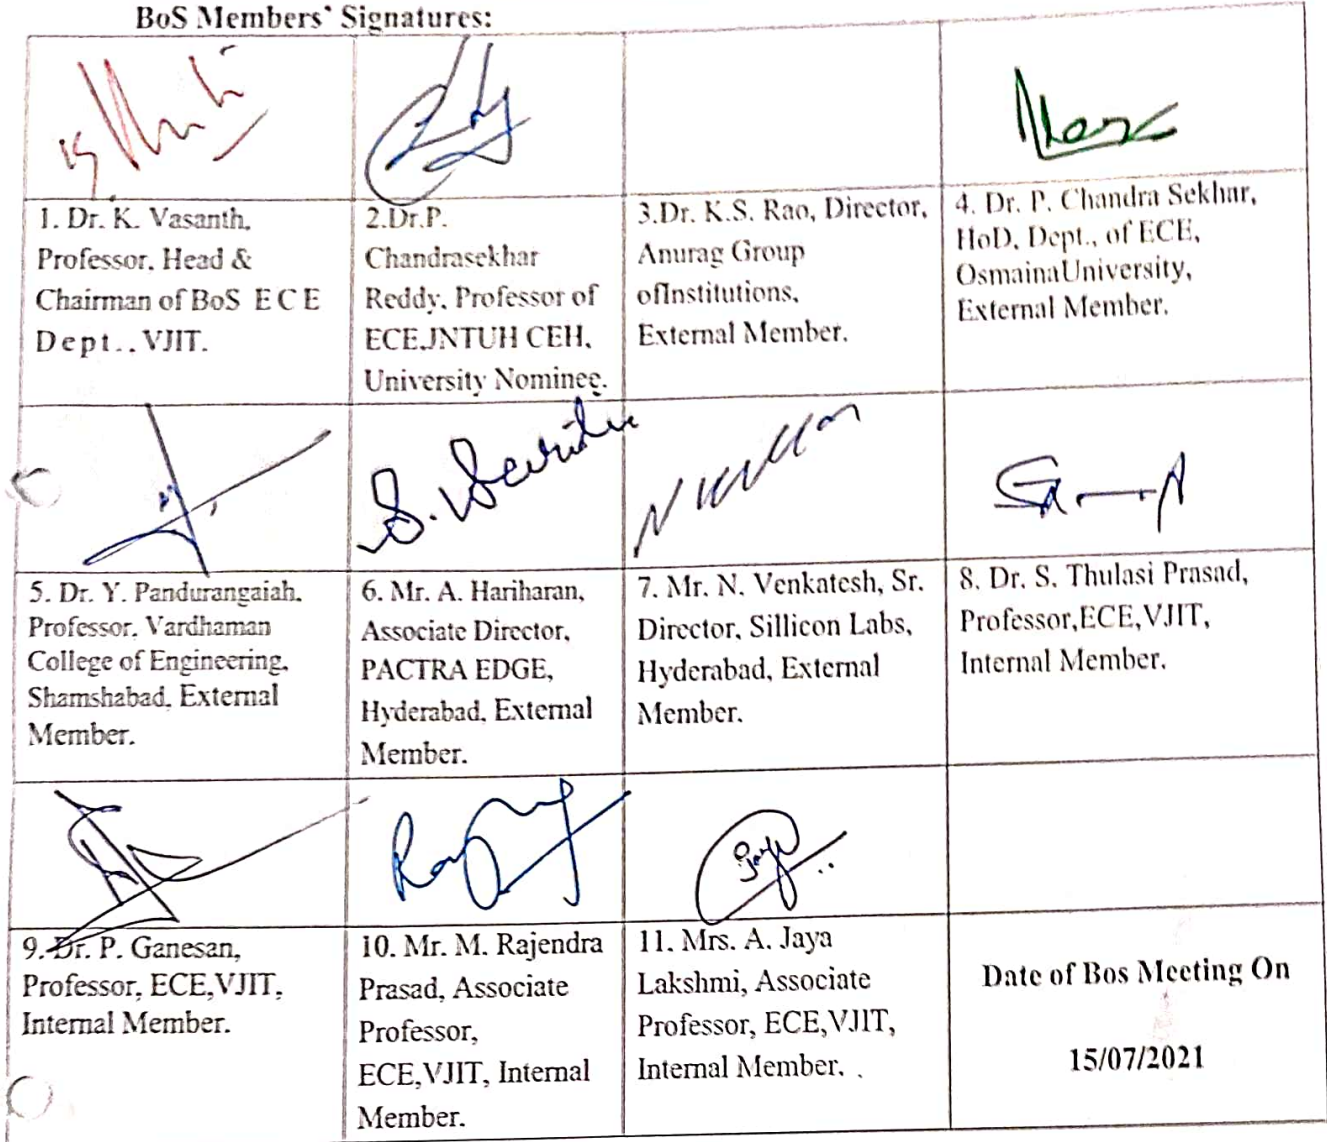 BoS Members' Signatures:
1. Dr. K. Vasanth,
Professor, Head &
Chairman of BoS E C E
Dept., VJIT.
2.Dr.P.
Chandrasekhar
Reddy, Professor of
ECE,JNTUH CEH,
University Nominee.
3.Dr. K.S. Rao, Director,
Anurag Group
ofInstitutions,
External Member.
4. Dr. P. Chandra Sekhar,
HoD, Dept., of ECE,
OsmainaUniversity,
External Member.
S.
5. Dr. Y. Pandurangaiah,
Professor, Vardhaman
College of Engineering,
Shamshabad, External
Member.
6. Mr. A. Hariharan,
Associate Director,
PACTRA EDGE,
Hyderabad, External
Member.
7. Mr. N. Venkatesh, Sr.
Director, Sillicon Labs,
Hyderabad, External
Member.
8. Dr. S. Thulasi Prasad,
Professor,ECE,VJIT,
Internal Member.
Jaya
9. Dr. P. Ganesan,
Professor, ECE,VJIT,
Internal Member.
10. Mr. M. Rajendra
Prasad, Associate
Professor,
ECE,VJIT, Internal
Member.
11. Mrs. A. Jaya
Lakshmi, Associate
Professor, ECE,VJIT,
Internal Member.
Date of Bos Meeting On
15/07/2021